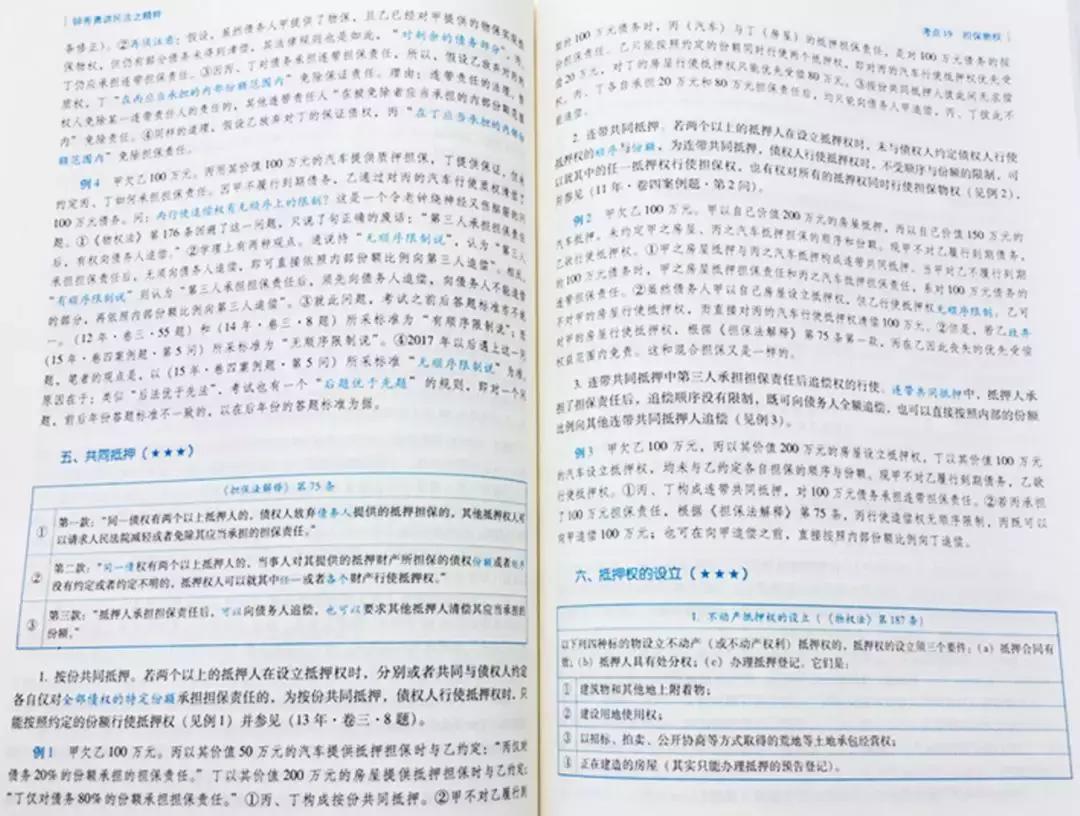 钟秀勇讲民法之精粹
务修正）。②再须注意：假设，虽然债务人甲提供了物保，且乙已经对甲提供的物保实现
保物权，但仍有部分债务未得到清偿，其法律规则也是如此，“对剩余的债务部分”，丙、
丁仍应承担连带担保责任。③因丙、丁对债务承担连带担保责任，所以，假设乙放弃对丙的
质权，丁“在丙应当承担的内部份额范围内”免除保证责任。理由：连带责任的法理，债
权人免除某一连带责任人的责任的，其他连带责任人“在被免除者应当承担的内部份额范围
内”免除责任。④同样的道理，假设乙放弃对丁的保证债权，丙“在丁应当承担的内部份
额范围内”免除担保责任。
例4 甲欠乙100万元。丙用某价值100万元的汽车提供质押担保，丁提供保证，但未
约定丙、丁如何承担担保责任。因甲不履行到期债务，乙通过对丙的汽车行使质权清偿了
100万元债务。问：丙行使追偿权有无顺序上的限制？这是一个令老钟烧神经又伤脑筋的问
题。①《物权法》第176条回避了这一问题，只说了句正确的废话：“第三人承担担保责任
后，有权向债务人追偿。”②学理上有两种观点。通说持“无顺序限制说”，认为“第三人
承担担保责任后，无须向债务人追偿，即可直接依照内部份额比例向第三人追偿”。相反，
“有顺序限制说”则认为“第三人承担担保责任后，须先向债务人追偿，向债务人不能追偿
的部分，再依照内部份额比例向第三人追偿”。③就此问题，考试之前后答题标准亦不统
一。（12年·卷三·55题）和（14年·卷三·8题）所采标准为“有顺序限制说”；而
（15年·卷四案例题·第5问）所采标准为“无顺序限制说”。④2017年以后遇上这一问
题，笔者的观点是，以（15年·卷四案例题·第5问）所采标准“无顺序限制说”为准。
原因在于：类似“后法优于先法”，考试也有一个“后题优于先题”的规则，即对一个问
题，前后年份答题标准不一致的，以在后年份的答题标准为据。
五、共同抵押（★★★）
《担保法解释》第75条
① 第一款：“同一债权有两个以上抵押人的，债权人放弃债务人提供的抵押担保的，其他抵押权人可
以请求人民法院减轻或者免除其应当承担的担保责任。”
② 第二款：“同一债权有两个以上抵押人的，当事人对其提供的抵押财产所担保的债权份额或者顺序
没有约定或者约定不明的，抵押权人可以就其中任一或者各个财产行使抵押权。”
③ 第三款：“抵押人承担担保责任后，可以向债务人追偿，也可以要求其他抵押人清偿其应当承担的
份额。”
1. 按份共同抵押。若两个以上的抵押人在设立抵押权时，分别或者共同与债权人约定
各自仅对全部债权的特定份额承担担保责任的，为按份共同抵押，债权人行使抵押权时，只
能按照约定的份额行使抵押权（见例1）并参见（13年·卷三·8题）。
例1 甲欠乙100万元。丙以其价值50万元的汽车提供抵押担保时与乙约定：“丙仅对
债务20%的份额承担的担保责任。”丁以其价值200万元的房屋提供抵押担保时与乙约定：
“丁仅对债务80%的份额承担担保责任。”①丙、丁构成按份共同抵押。②甲不对乙履行到
考点19 担保物权
期的100万元债务时，丙（汽车）与丁（房屋）的抵押担保责任，是对100万元债务的按
份担保责任。乙只能按照约定的份额同时行使两个抵押权，即对丙的汽车行使抵押权优先受
偿20万元，对丁的房屋行使抵押权只能优先受偿80万元。③按份共同抵押人彼此间无求偿
权，丙、丁各自承担20万元和80万元担保责任后，均只能向债务人甲追偿，丙、丁彼此不
能追偿。
2. 连带共同抵押。若两个以上的抵押人在设立抵押权时，未与债权人约定债权人行使
抵押权的顺序与份额，为连带共同抵押，债权人行使抵押权时，不受顺序与份额的限制，可
以就其中的任一抵押权行使担保权，也有权对所有的抵押权同时行使担保物权（见例2），
并参见（11年·卷四案例题·第2问）。
例2 甲欠乙100万元。甲以自己价值200万元的房屋抵押，丙以自己价值150万元的
汽车抵押。未约定甲之房屋、丙之汽车抵押担保的顺序和份额。现甲不对乙履行到期债务，
乙欲行使抵押权。①甲之房屋抵押与丙之汽车抵押构成连带共同抵押。当甲对乙不履行到期
的100万元债务时，甲之房屋抵押担保责任和丙之汽车抵押担保责任，系对100万元债务的
连带担保责任。②虽然债务人甲以自己房屋设立抵押权，但乙行使抵押权无顺序限制，乙可
不对甲的房屋行使抵押权，而直接对丙的汽车行使抵押权清偿100万元。③但是，若乙放弃
对甲的房屋行使抵押权，根据《担保法解释》第75条第一款，丙在乙因此丧失的优先受偿
权益范围内免责。这和混合担保又是一样的。
3. 连带共同抵押中第三人承担担保责任后追偿权的行使。连带共同抵押中，抵押人承
担了担保责任后，追偿顺序没有限制，既可向债务人全额追偿，也可以直接按照内部的份额
比例向其他连带共同抵押人追偿（见例3）。
例3 甲欠乙100万元，丙以其价值200万元的房屋设立抵押权，丁以其价值100万元
的汽车设立抵押权，均未与乙约定各自担保的顺序与份额。现甲不对乙履行到期债务，乙欲
行使抵押权。①丙、丁构成连带共同抵押，对100万元债务承担连带担保责任。②若丙承担
了100万元担保责任，根据《担保法解释》第75条，丙行使追偿权无顺序限制，丙既可以
向甲追偿100万元；也可在向甲追偿之前，直接按照内部份额比例向丁追偿。
六、抵押权的设立（★★★）
1. 不动产抵押权的设立（《物权法》第187条）
以下列四种标的物设立不动产（或不动产权利）抵押权的，抵押权的设立须三个要件：（a）抵押合同有
效；（b）抵押人具有处分权；（c）办理抵押登记。它们是：
① 建筑物和其他地上附着物；
② 建设用地使用权；
③ 以招标、拍卖、公开协商等方式取得的荒地等土地承包经营权；
④ 正在建造的房屋（其实只能办理抵押的预告登记）。